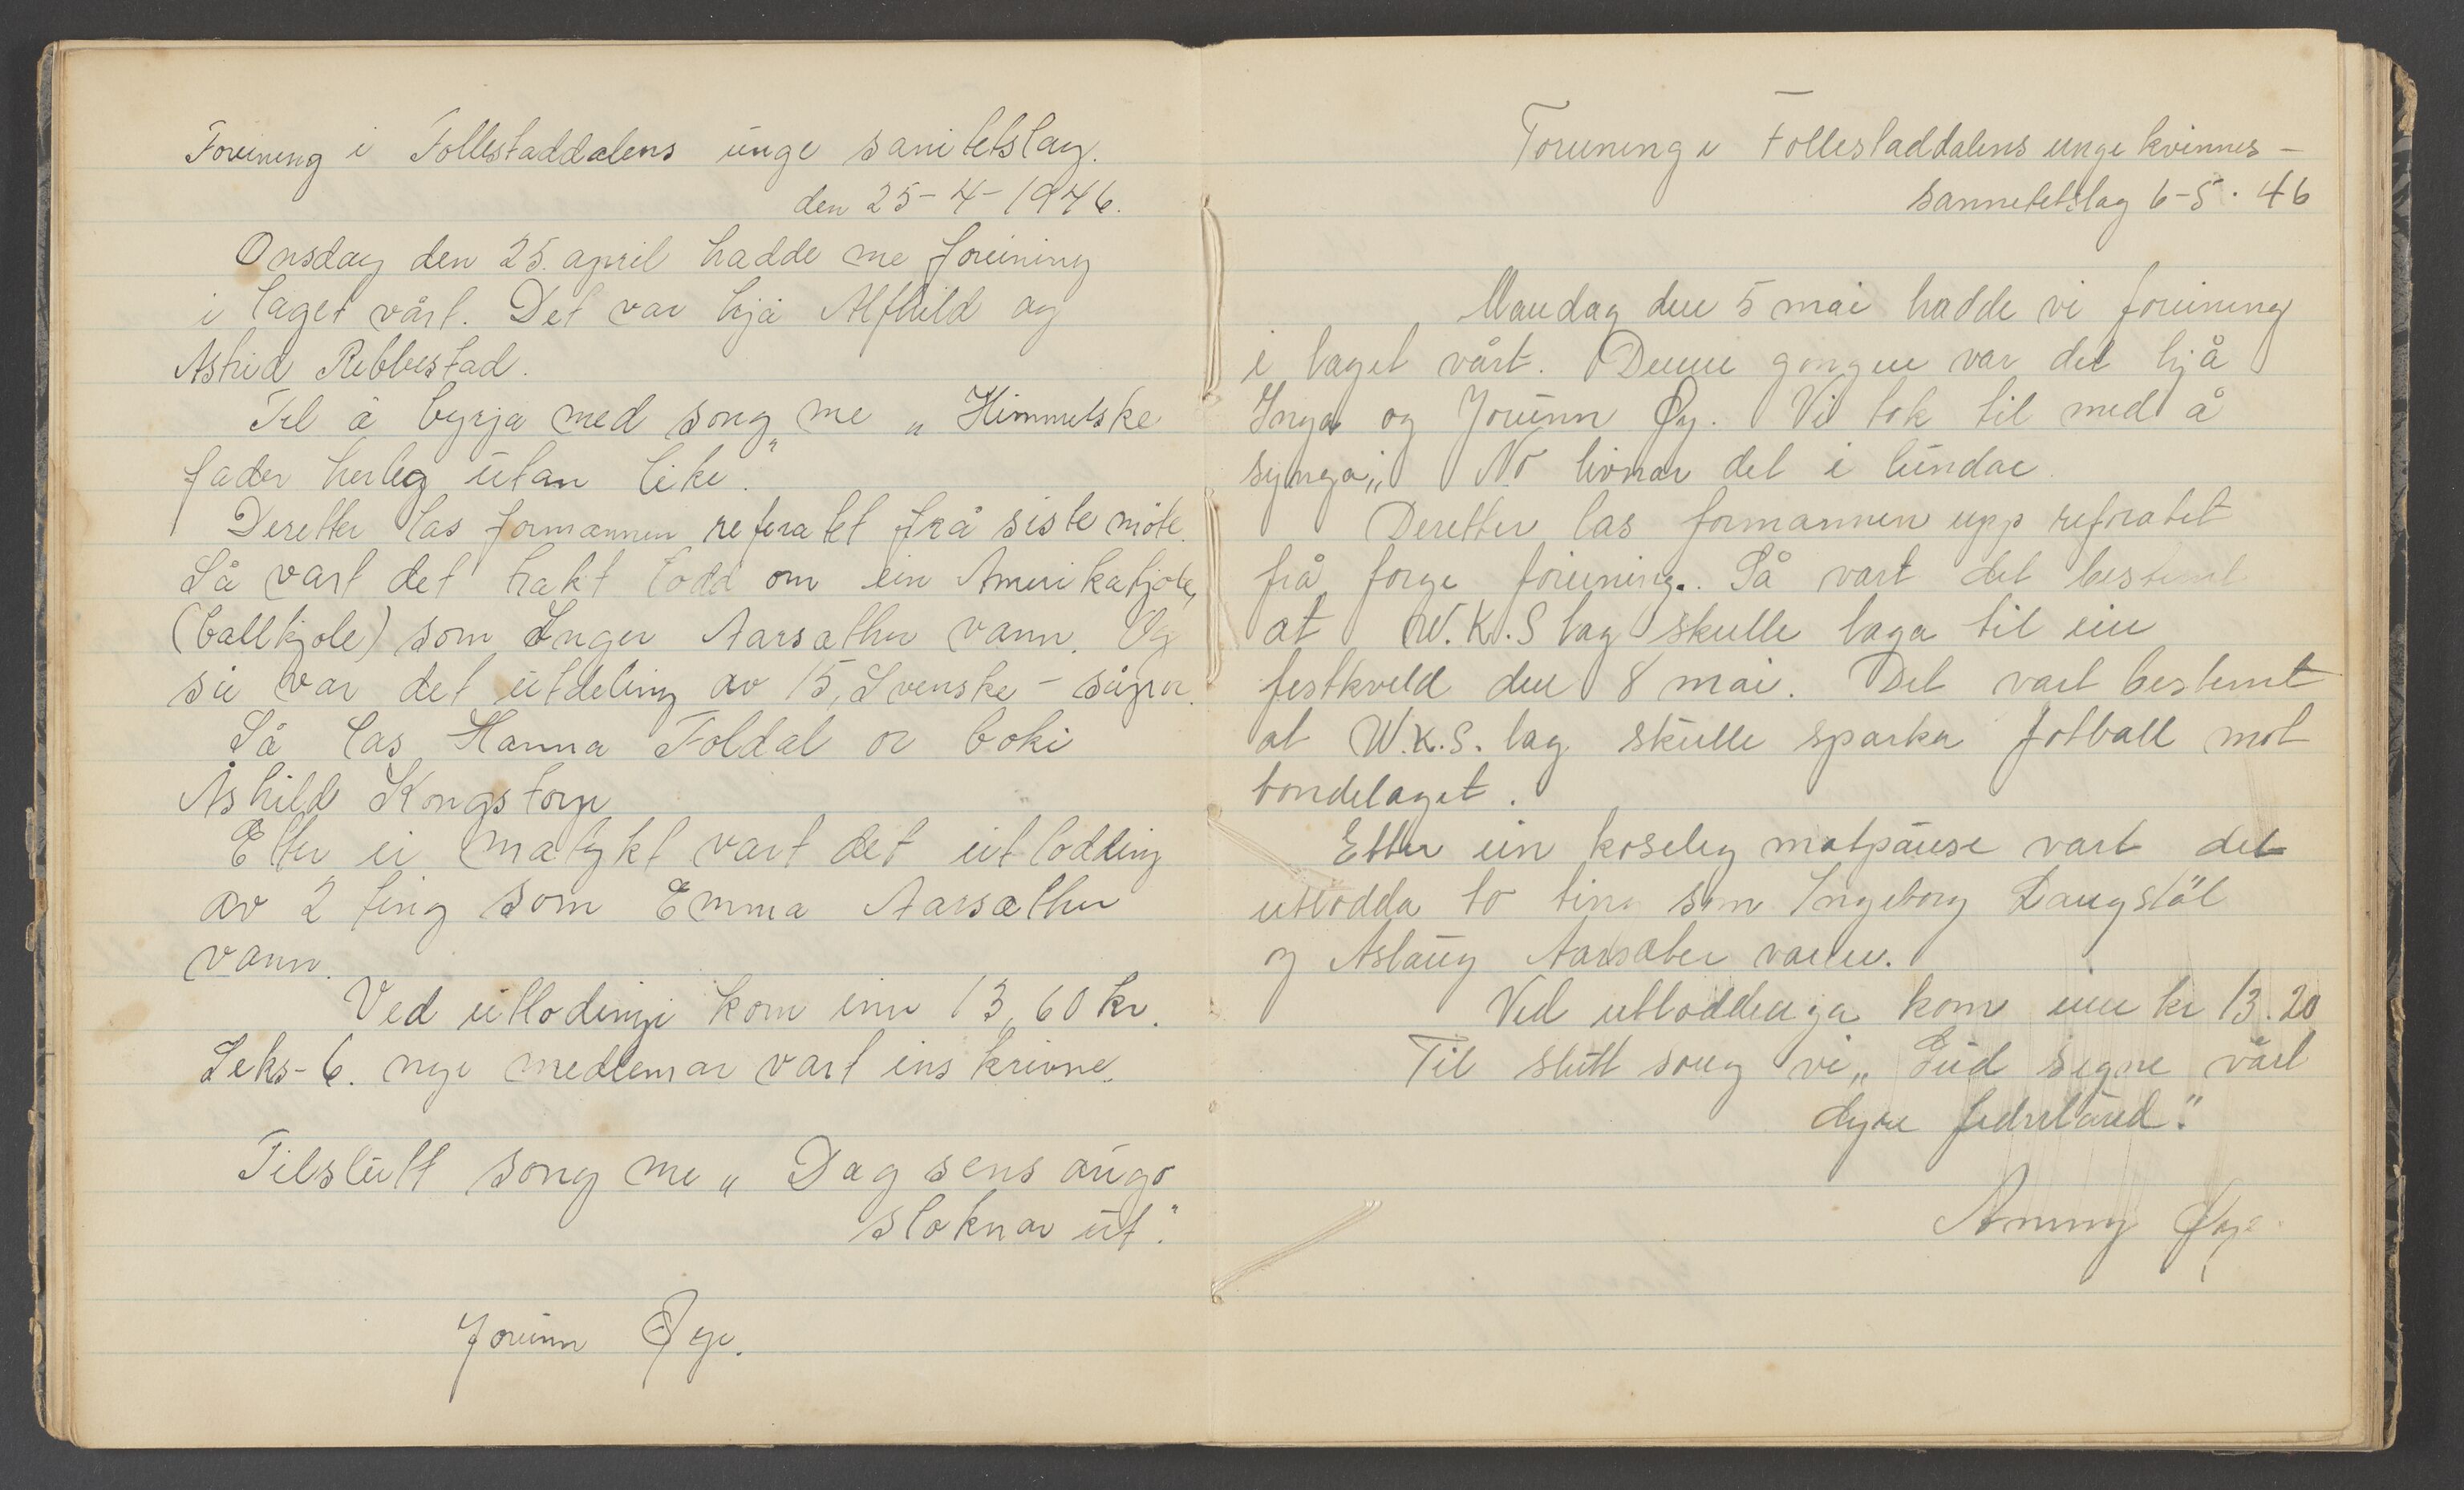 Foreining i Follestaddalens unge sanitetslag.
den 25-4-1946.
Onsdag den 25. april hadde me foreining
i laget vårt. Det var hjå Alfhild og
Astrid Rebbestad.
Til å byrja med song me „Himmelske
fader herleg utan like".
Deretter las formannen referatet frå siste möte.
Så vart det trekt lodd om ein Amerikakjole,
(ballkjole) som Inger Aarsæther vann. Og
så var det utdeling av 15, Svenske-såpor.
Så las Hanna Foldal or boki
Åshild Kongstorp
Etter ei matykt vart det utlodding
av 2 ting som Emma Aarsæther
vann.
Ved utlodingi kom inn 13,60 kr.
Seks-6. nye medlemar vart inskrivne.
Tilslutt song me „Dag sens augo
sloknar ut."
Jorunn Øye.
Foreining i Follestaddalens unge kvinnes-
sannetetslag 6-5.46
Mandag den 5 mai hadde vi foreining
i laget vårt. Denne gongen var det hjå
Inga og Jorunn Øy. Vi tok til med å
synga„ No livnar det i lundar
Deretter las formannen upp referatet
frå forge foreining. Så vart det bestemt
at W.K.S lag skulle laga til ein
festkveld den 8 mai. Det vart bestemt
at W.K.S. lag skulle sparka fotball mot
bondelaget.
Etter ein koseleg matpause vart det
utlodda to ting som Ingeborg Daugstöl
og Aslaug Aarsæter vann.
Ved utloddenga kom inn kr 13.20
Til slutt song vi„ Gud signe vårt
dyre fedreland."
Anny Øye